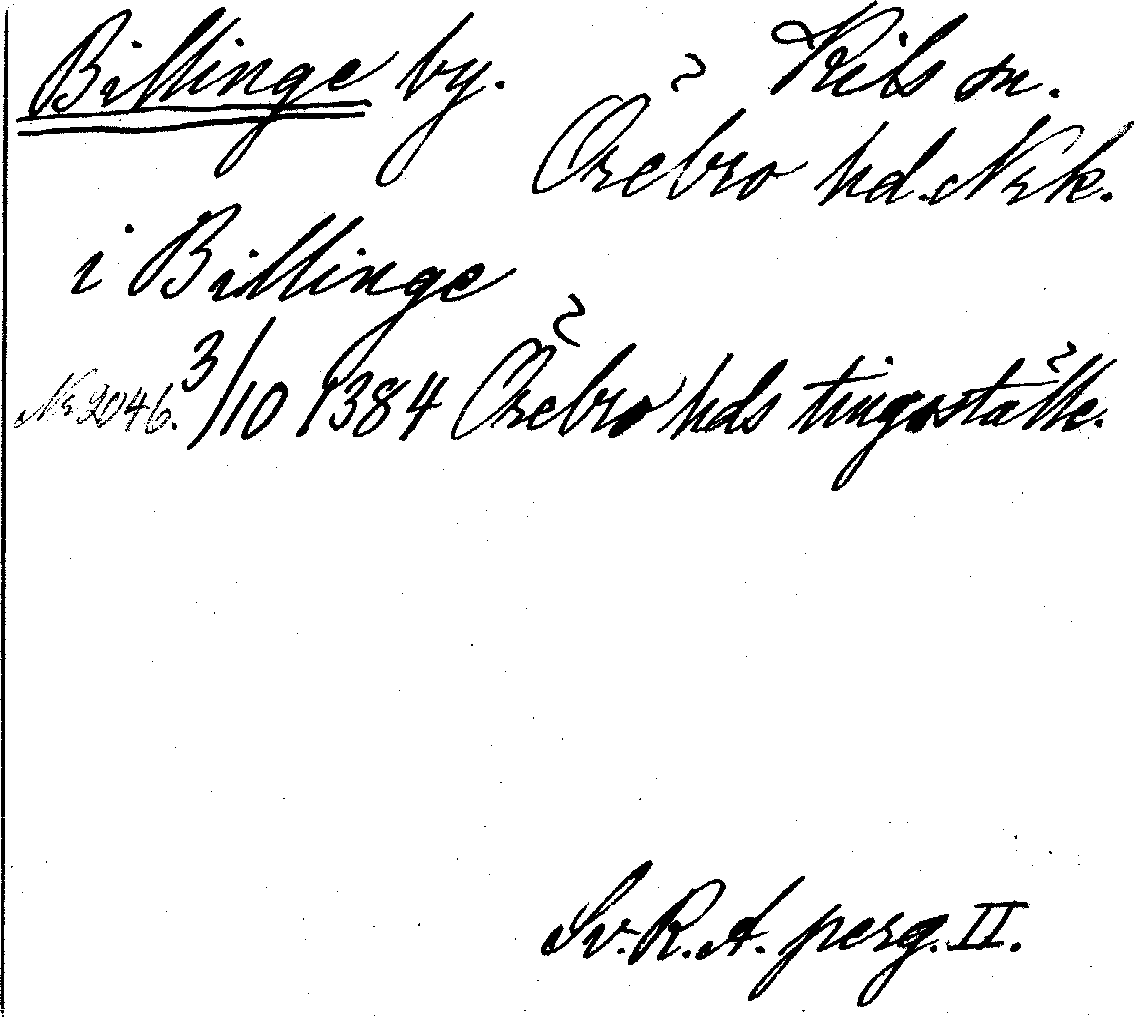 Billinge by. Kils sn.
Örebro hd. Nrk.
i Billinge
Nr 2046. 3/10 1384 Örebro hds tingställe.
Sv. R. A. perg. II.